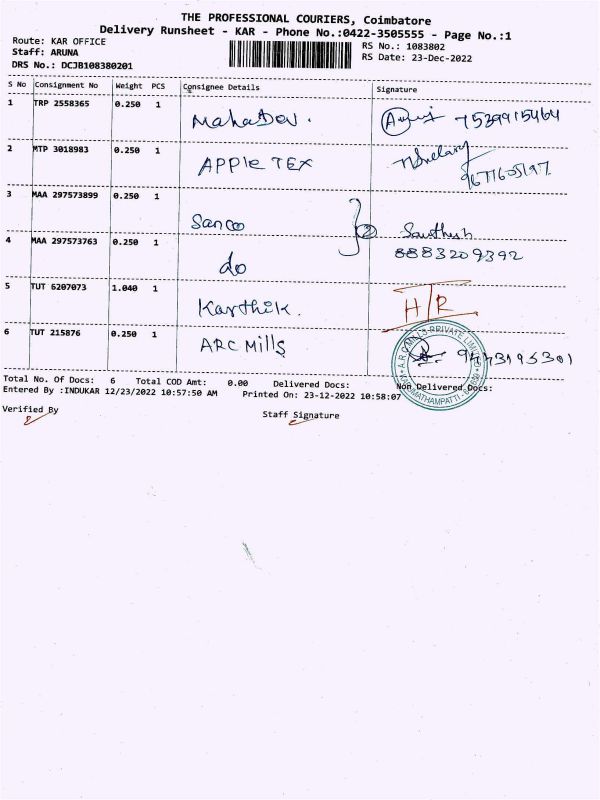 THE PROFESSIONAL COURIERS, Coimbatore
Delivery Runsheet - KAR - Phone No.:0422-3505555 - Page No.:1
Route: KAR OFFICE
Staff: ARUNA
DRS No.: DCJB108380201
RS No.: 1083802
RS Date: 23-Dec-2022
S No Consignment No Weight PCS Consignee Details Signature
1 TRP 2558365 0.250 1 MahaDev. 7539915464
2 MTP 3018983 0.250 1 APPle TEX
3 MAA 297573899 0.250 1 Sanco
4 MAA 297573763 0.250 1 do 2 Santhosh 8883209392
5 TUT 6207073 1.040 1 Karthik. H/R
6 TUT 215876 0.250 1 ARC Mills
A.R.C MILLS PRIVATE LIMITED
Total No. Of Docs: 6 Total COD Amt: 0.00 Delivered Docs: Non Delivered Docs:
Entered By :INDUKAR 12/23/2022 10:57:50 AM Printed On: 23-12-2022 10:58:07
Verified By
Staff Signature